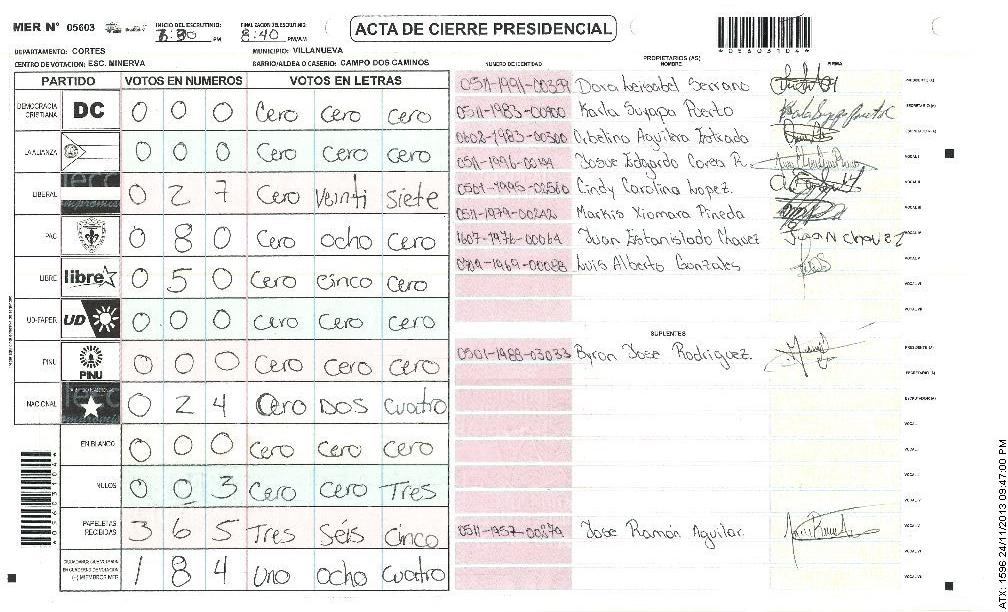 MER N° 05603 INICIO DEL ESCRUTINIO: PM FINALIZACION DEL ESCRUTINIO: 8:40 PM/AM
ACTA DE CIERRE PRESIDENCIAL
DEPARTAMENTO: CORTES MUNICIPIO: VILLANUEVA
CENTRO DE VOTACION: ESC. MINERVA BARRIO/ALDEA O CASERIO: CAMPO DOS CAMINOS
0 5 6 0 3 1 0 4
PARTIDO VOTOS EN NUMEROS VOTOS EN LETRAS
DEMOCRACIA CRISTIANA DC 0 0 0 Cero Cero cero
LA ALIANZA 0 0 0 Cero Cero cero
LIBERAL 0 2 7 Cero Veinti siete
PAC 0 8 0 Cero ocho cero
LIBRE libre 0 5 0 Cero cinco cero
UD-FAPER UD 0 0 0 Cero Cero cero
PINU PINU 0 0 0 Cero Cero cero
NACIONAL 0 2 4 Cero DOS cuatro
EN BLANCO 0 0 0 cero cero cero
NULOS 0 0 3 Cero Cero Tres
PAPELETAS RECIBIDAS 3 6 5 Tres Séis cinco
1 8 4 Uno Ocho cuatro
PROPIETARIOS (AS)
NUMERO DE IDENTIDAD NOMBRE FIRMA
0511-1991-00359 Serrano PRESIDENTE (A)
0511-1983-00900 Karla Suyapa Puerto SECRETARIO (A)
0602-1983-00300 Aguilera Estrada ESCRUTADOR (A)
Josue Edgardo Corea R. VOCAL I
Cindy Carolina Lopez. VOCAL II
0511-1979-00242 Xiomara Pineda VOCAL III
1607-1976-00064 Juan Estanislado Chavez Juan Chavez VOCAL IV
Luis Alberto Gonzales VOCAL V
VOCAL VI
VOCAL VII
SUPLENTES
0501-1988-03033 Byron Jose Rodriguez. PRESIDENTE (A)
SECRETARIO (A)
ESCRUTADOR (A)
VOCAL I
VOCAL II
VOCAL III
VOCAL IV
Jose Ramón Aguilar VOCAL V
VOCAL VI
VOCAL VII
ATX: 1596 24/11/2013 09:47:00 PM